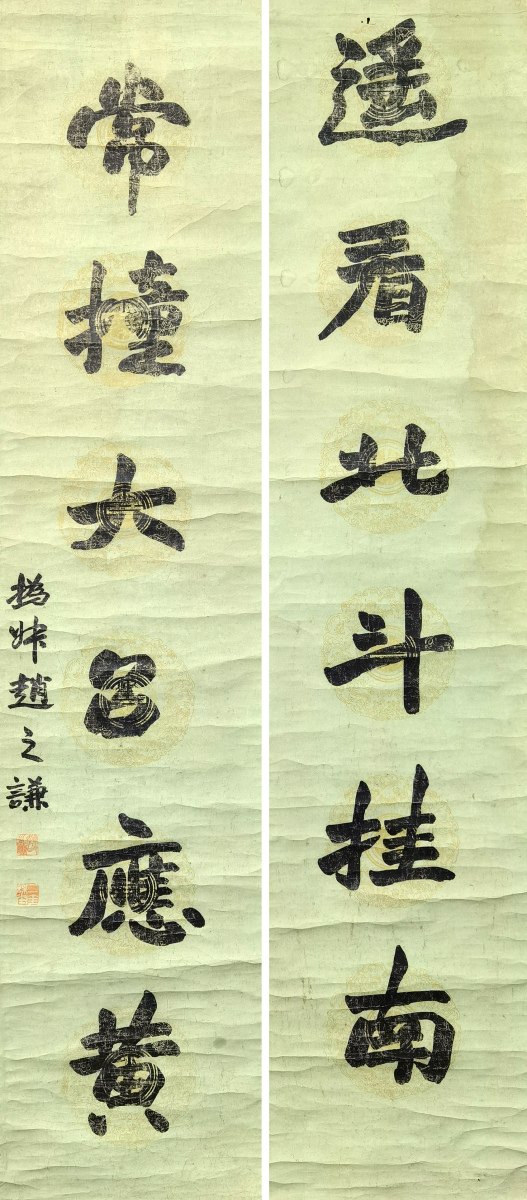 遥看北斗挂南
常撞大吕應黄
撝叔趙之謙